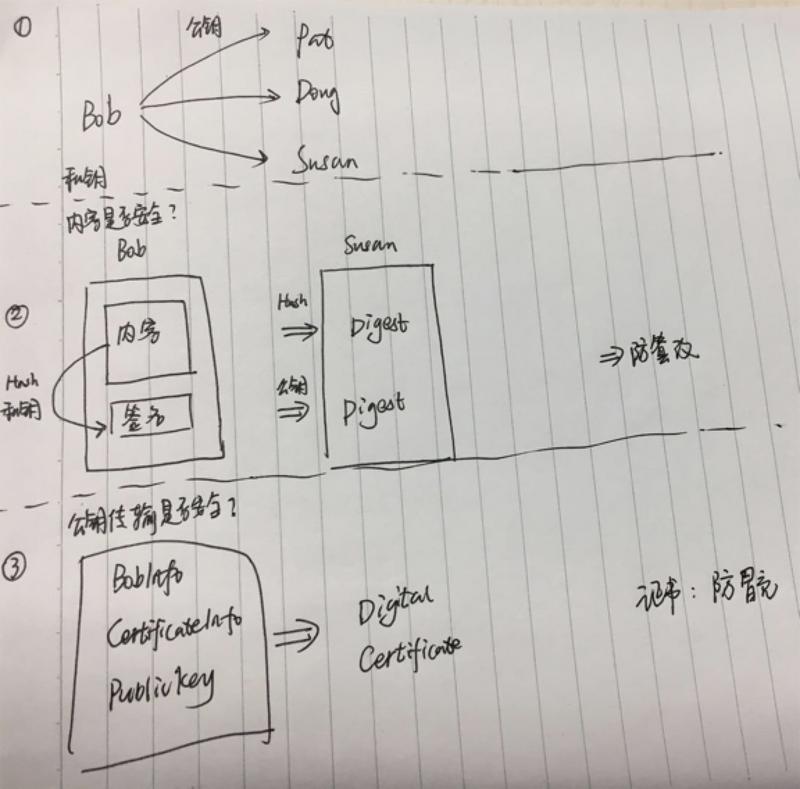 ①
公钥
Pat
Bob
Dong
Susan
私钥
内容是否安全?
Bob
Susan
②
内容
Hash
Digest
⇒防篡改
Hash
私钥
签名
公钥
Digest
公钥传输是否安全?
③
BobInfo
CertificateInfo
PublicKey
Digital
Certificate
证书: 防冒充